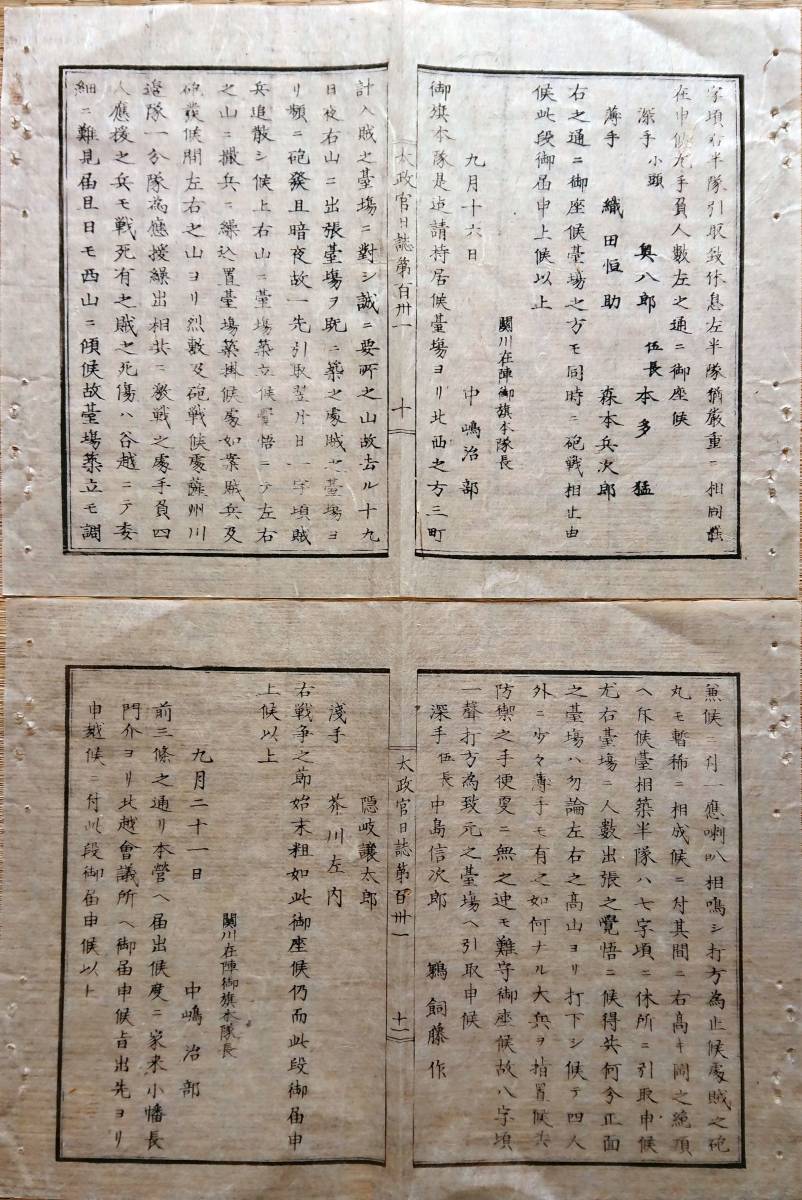 字頃右半隊引取致休息左半隊猶厳重ニ相固
在申候尤手負人数左之通ニ御座候
深手 小頭 奥八郎 伍長 本多猛
薄手 織田恒助 森本兵次郎
右之通ニ御座候臺場之方モ同時ニ砲戦相止由
候此段御届申上候以上
九月十六日
関川在陣御旗本隊長
中嶋治部
御旗本隊是迠請持居候臺場ヨリ北西之方三町
太政官日誌第百卅一 十
計入賊之臺場ニ對シ誠ニ要所之山故去ル十九
日夜右山ニ出張臺場ヲ既ニ築之處賊之臺場ヨ
リ頻ニ砲發且暗夜故一先引取翌廿日一字頃賊
兵追散シ候上右山ニ臺場築立候覺悟ニテ左右
之山ニ撒兵ニ繰込置臺場築掛候處如案賊兵及
砲發候間左右之山ヨリ烈敷及砲戦候處蘇州川
邉隊一分隊為應援繰出相共ニ激戦之處手負四
人應援之兵モ戦死有之賊之死傷ハ谷越ニテ委
細ニ難見届且日モ西山ニ傾候故臺場築立モ調
兼候ニ付一應喇叭相鳴シ打方為止候處賊之砲
丸モ暫稀ニ相成候ニ付其間ニ右高キ岡之絶頂
ヘ斥候臺相築半隊ハ七字頃ニ休所ニ引取申候
尤右臺場ニ人数出張之覺悟ニ候得共何分正面
之臺場ハ勿論左右之高山ヨリ打下シ候テ四人
外ニ少々薄手モ有之如何ナル大兵ヲ指置候共
防禦之手便更ニ無之迚モ難守御座候故八字頃
一聲打方為致元之臺場ヘ引取申候
深手 伍長 中島信次郎 鵜飼藤作
太政官日誌第百卅一 十一
隠岐譲太郎
淺手 芥川左内
右戦争之節始末粗如此御座候仍而此段御届申
上候以上
関川在陣御旗本隊長
九月二十一日 中嶋治部
前三條之通リ本營ヘ届出候度ニ家来小幡長
門介ヨリ北越會議所ヘ御届申候旨出先ヨリ
申越候ニ付此段御届申候以上